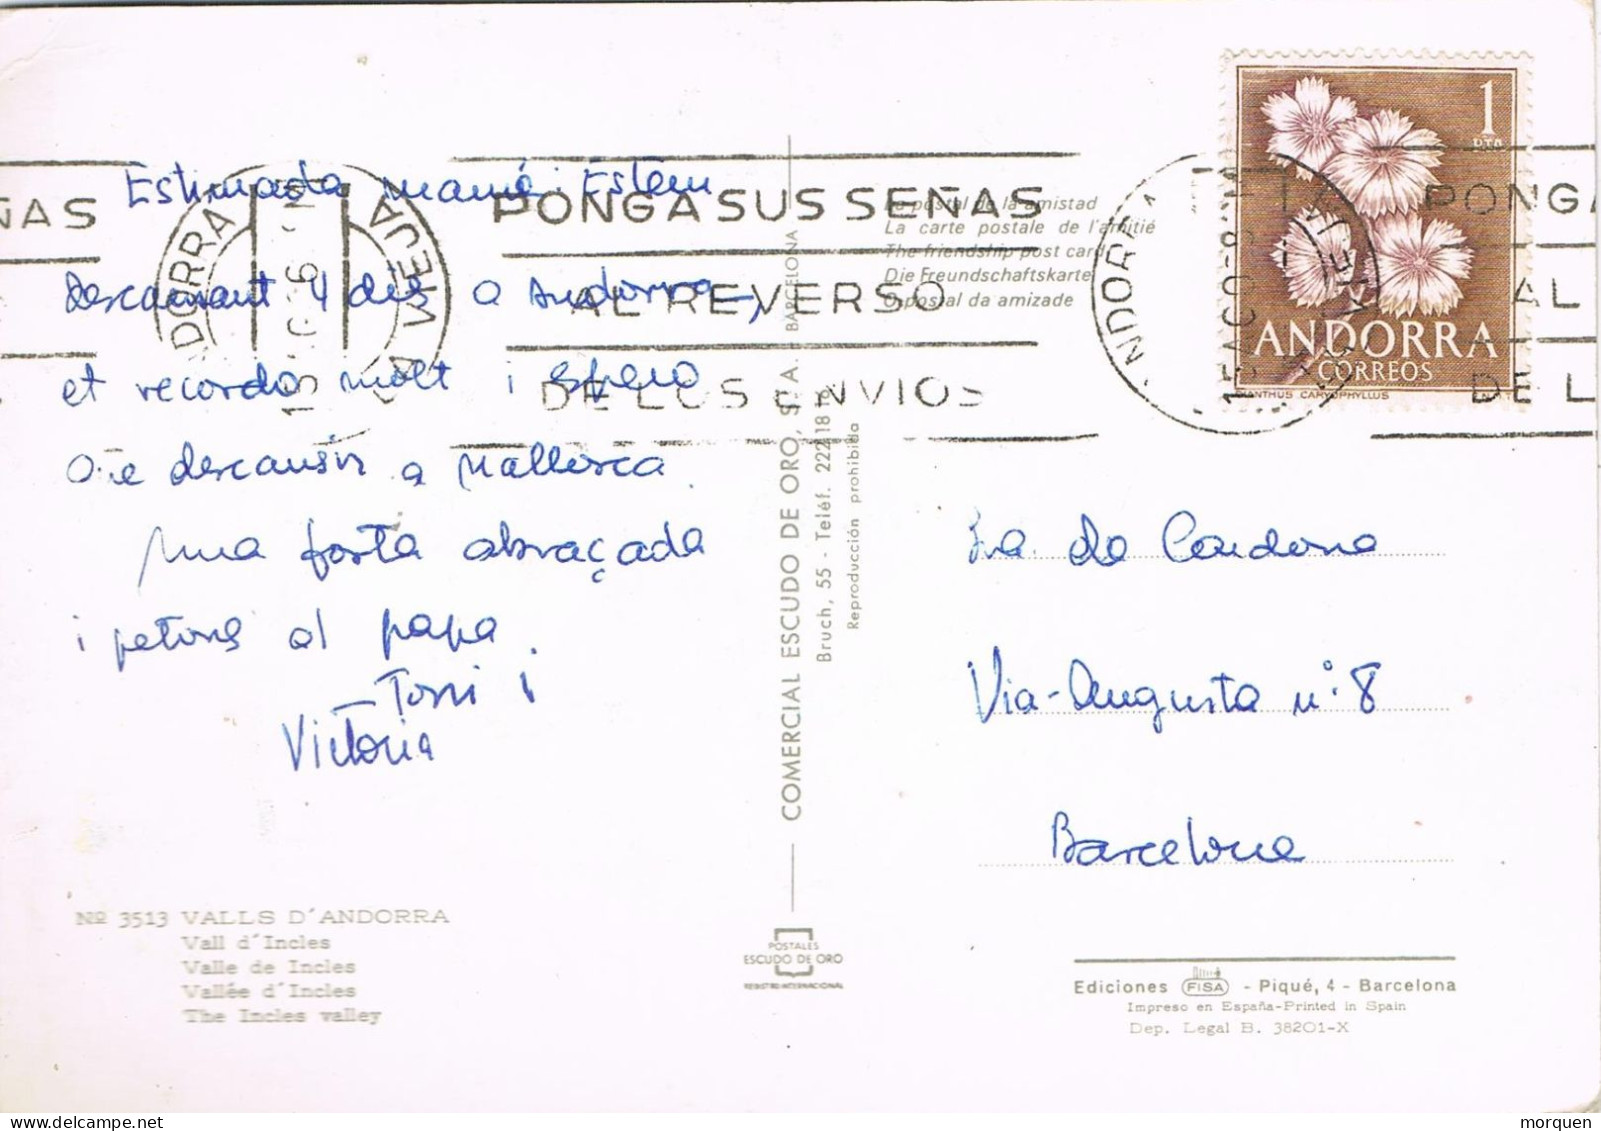 Estimada mamá: Estem
descansant 4 dies a Andorra,
et recordo molt i espero
que descansis a Mallorca.
Una forta abraçada
i petons al papa
Toni i
Victoria
Nº 3513 VALLS D'ANDORRA
Vall d'Incles
Valle de Incles
Vallée d'Incles
The Incles valley
ANDORRA LA VIEJA
PONGA SUS SEÑAS
AL REVERSO
DE LOS ENVIOS
La postal de la amistad
La carte postale de l'amitié
The friendship post card
Die Freundschaftskarte
O postal da amizade
COMERCIAL ESCUDO DE ORO, S. A. BARCELONA
Bruch, 55 - Teléf. 222 18 16
Reproducción prohibida
POSTALES
ESCUDO DE ORO
REGISTRO INTERNACIONAL
1
PTA
ANDORRA
CORREOS
DIANTHUS CARYOPHYLLUS
F.N.M.T.
ANDORRA LA VIEJA
PONGA
AL
DE L
ÑAS
Sra de Cardona
Via-Augusta nº 8
Barcelona
Ediciones FISA - Piqué, 4 - Barcelona
Impreso en España-Printed in Spain
Dep. Legal B. 38201-X
morquen